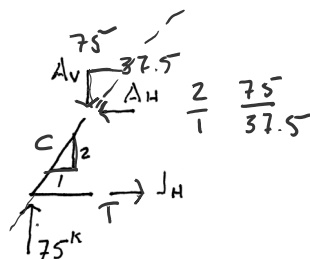 75
Av 37.5
AH
2/1 75/37.5
C 2
1
T JH
75K